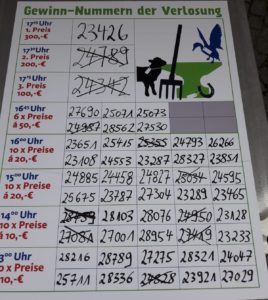 Gewinn-Nummern der Verlosung
17⁴⁵ Uhr
1. Preis
300,-€
23426
17³⁰ Uhr
2. Preis
200,-€
24789
17¹⁵ Uhr
3. Preis
100,-€
24342
16⁴⁵ Uhr
6 x Preise
à 50,-€
27690 25071 25073
28562 27530
16⁰⁰ Uhr
10 x Preise
à 20,-€
23651 25415 25355 24793 26266
23108 24553 23287 28327 23851
15⁰⁰ Uhr
10 x Preise
à 20,-€
24885 24458 24827 28034 24595
25675 23787 27304 23289 23465
14⁰⁰ Uhr
10 x Preise
à 10,-€
28103 28076 24950 23128
27084 27001 28954 23419 23233
3⁰⁰ Uhr
0 x Preise
à 10,-€
28216 28789 27275 28321 24047
25711 28336 27828 23921 27029